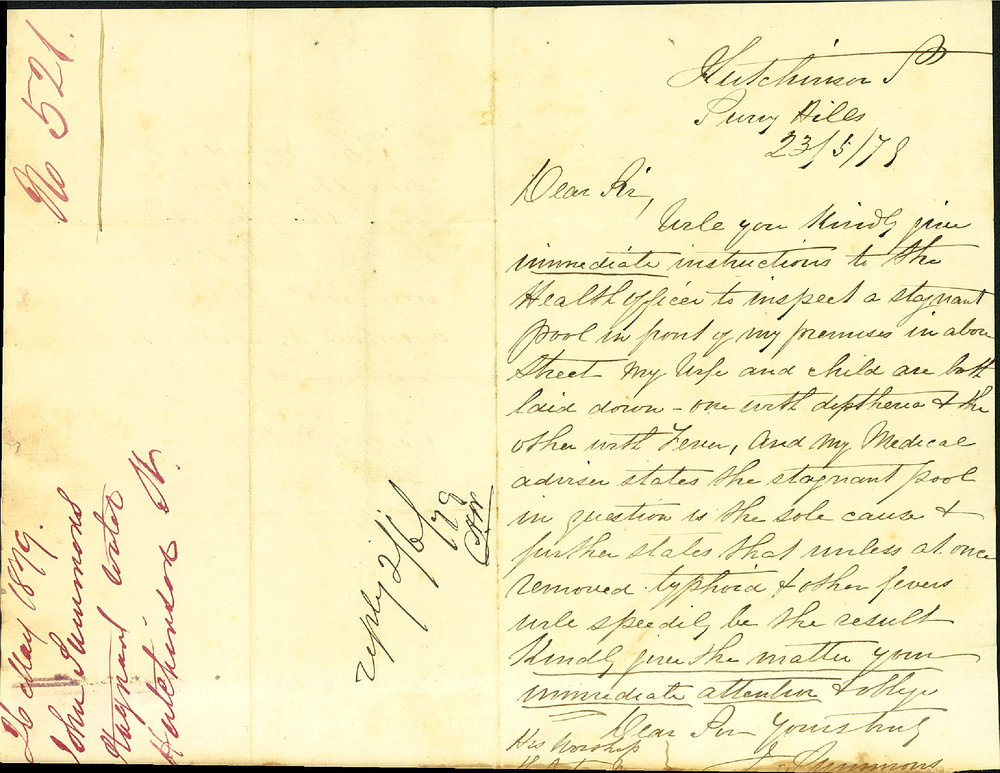 No 521.
26 May 1879.
John Summons
Stagnant Water
Hutchinson St.
reply 2/6/79
Hutchinson St
Surry Hills
23/5/79
Dear Sir,
Will you Kindly give
immediate instructions to the
Health Officer to inspect a stagnant
pool in front of my premises in above
Street My Wife and child are both
laid down - one with diptheria & the
other with Fever, And My Medical
adviser states the stagnant pool
in question is the sole cause &
further states that unless at once
removed typhoid & other fevers
will speedily be the result
Kindly give the matter your
immediate attention & oblige
Dear Sir Yours truly
His Worship J Summons